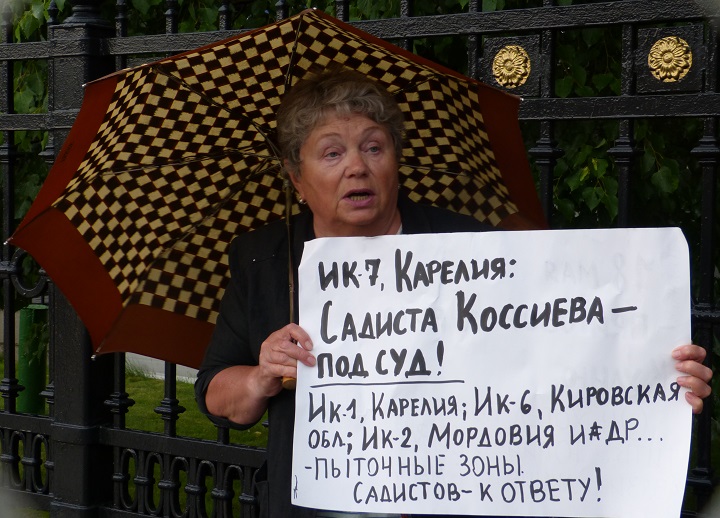 ИК-7, КАРЕЛИЯ:
САДИСТА КОССИЕВА –
ПОД СУД!
ИК-1, КАРЕЛИЯ; ИК-6, КИРОВСКАЯ
ОБЛ; ИК-2, МОРДОВИЯ И ДР...
-ПЫТОЧНЫЕ ЗОНЫ.
САДИСТОВ- К ОТВЕТУ!